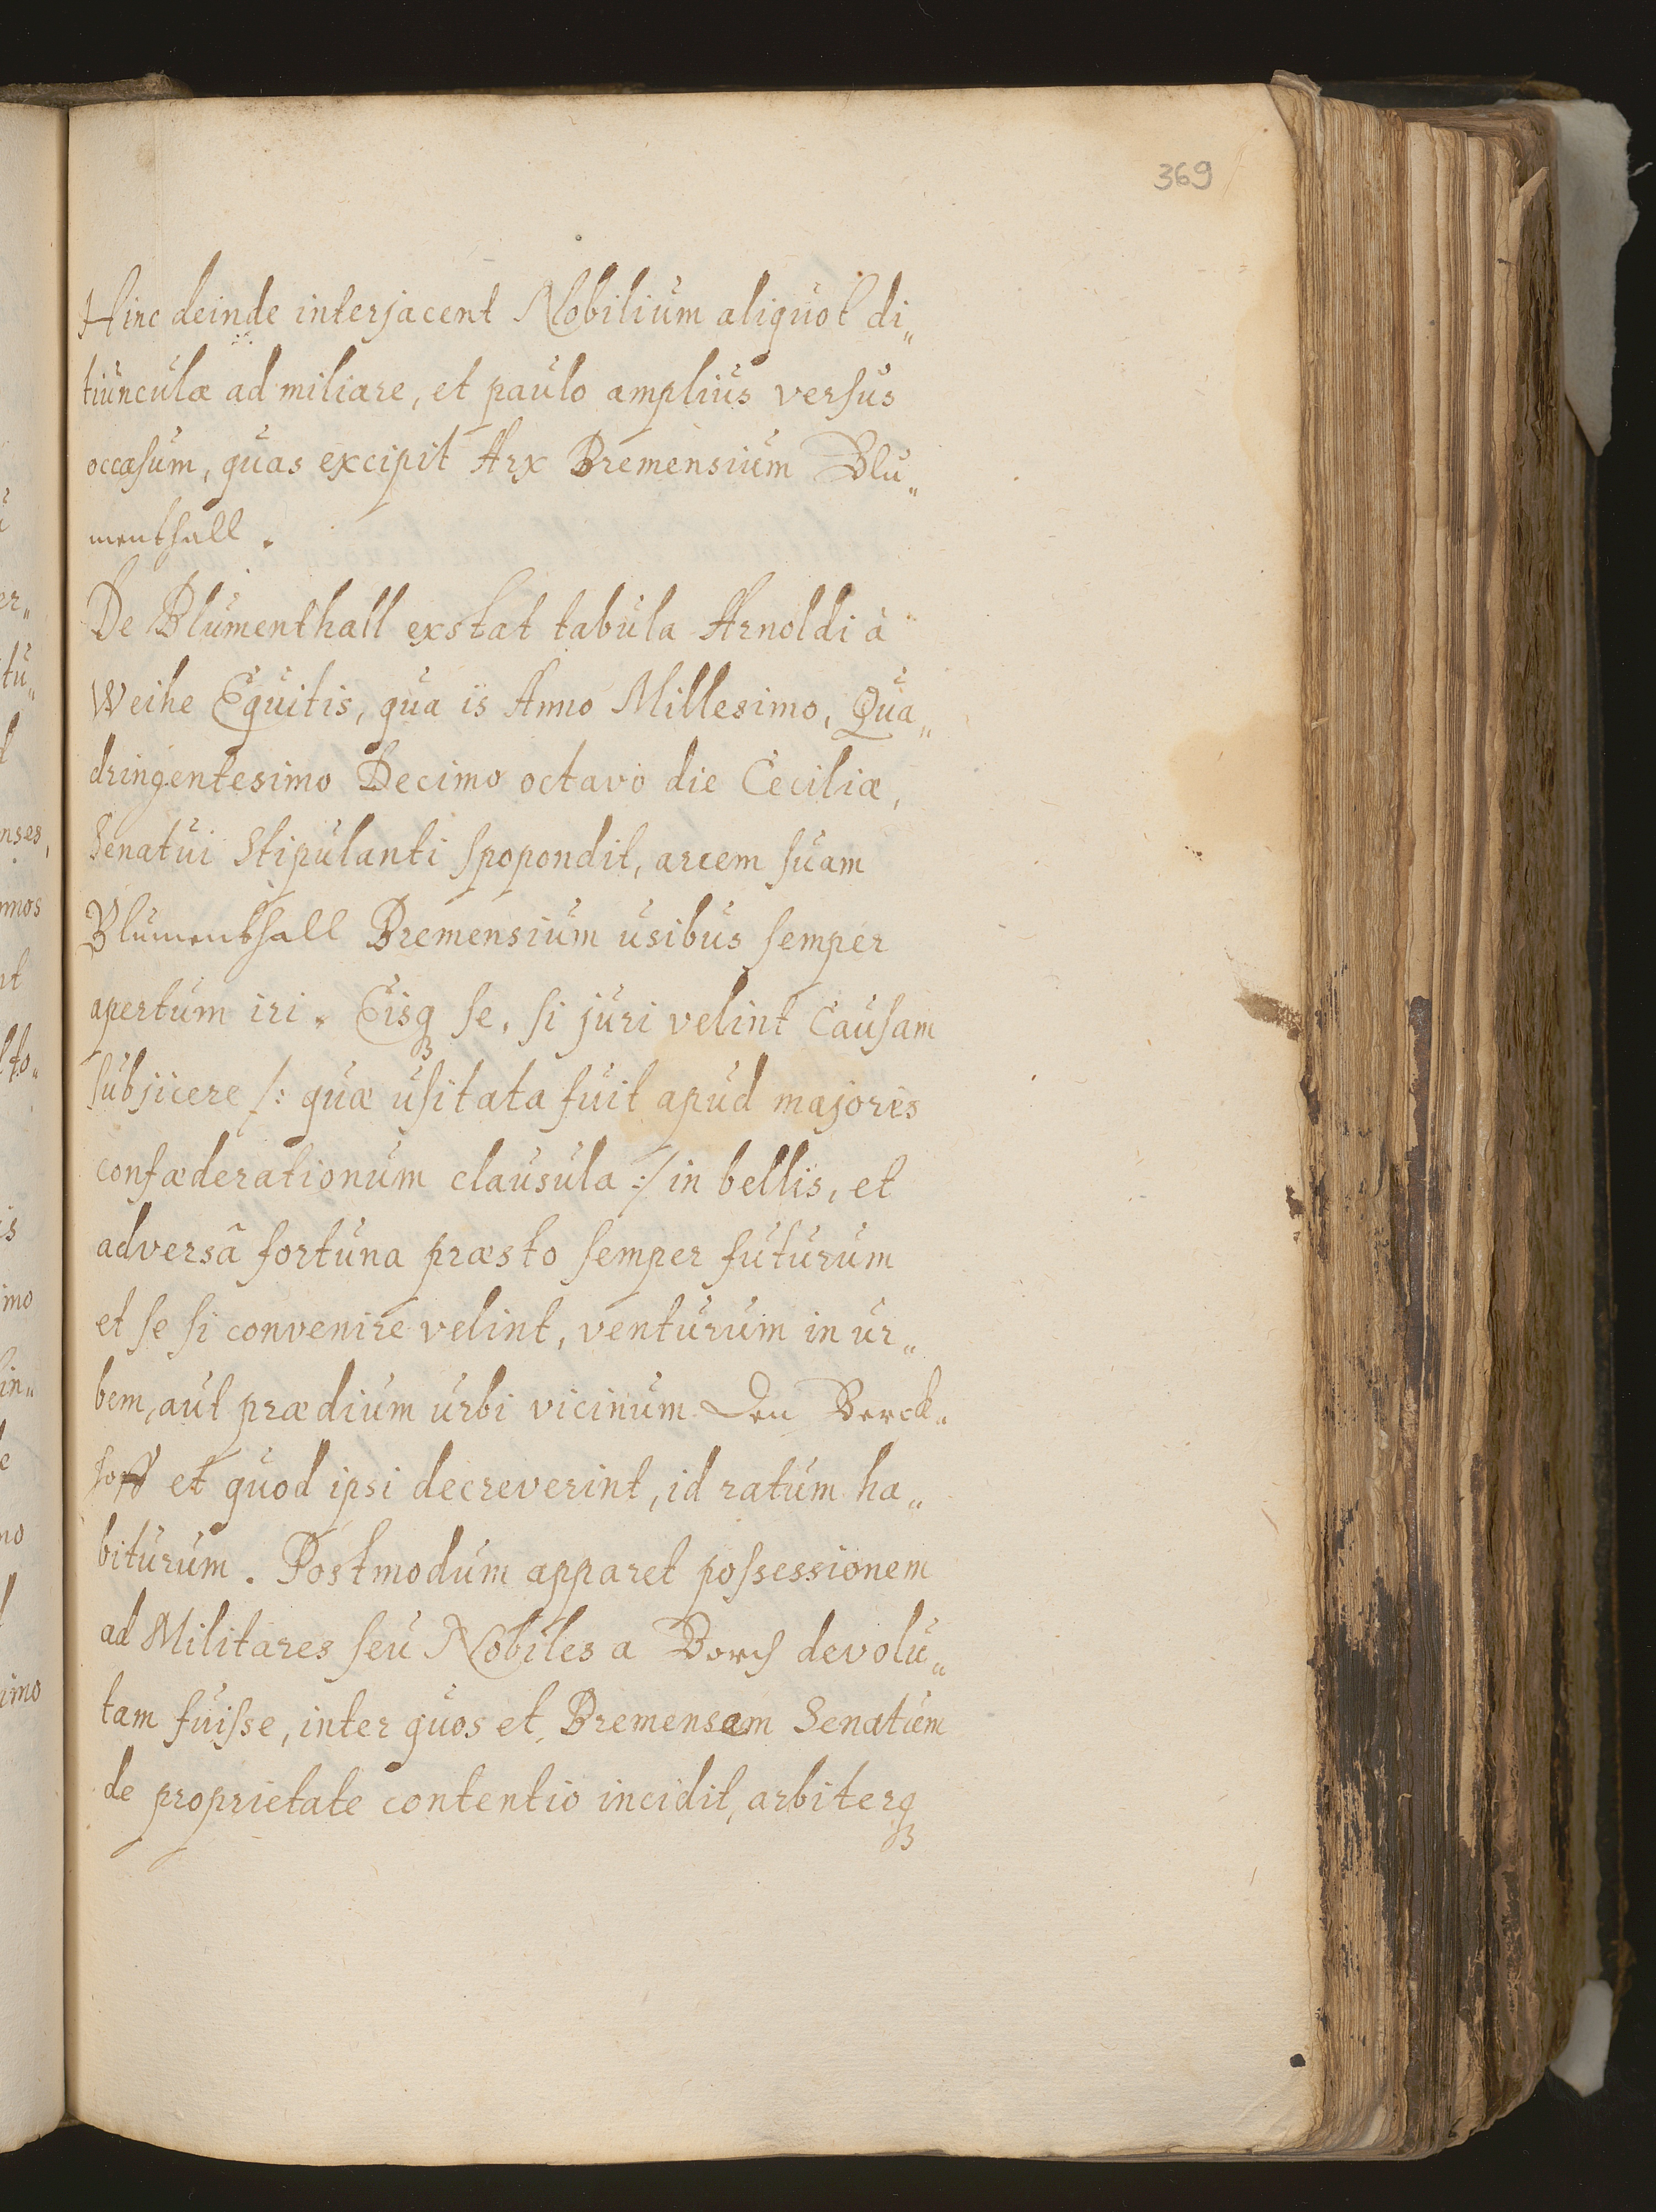 369
Hinc deinde interjacent Nobilium aliquot di„
tiunculæ ad miliare, et paulo amplius versus
occasum, quas excipit Arx Bremensium Blu„
menthall.
De Blumenthall exstat tabula Arnoldi à
Weihe Equitis, qua is Anno Millesimo, Qua„
dringentesimo Decimo octavo die Ceciliæ,
Senatui Stipulanti spopondit, arcem suam
Blumenthall Bremensium usibus semper
apertum iri. Eisqꝫ se, si juri velint Causam
subjicere /: quæ usitata fuit apud majores
confæderationum clausula :/ in bellis, et
adversâ fortuna præsto semper futurum
et se si convenire velint, venturum in ur„
bem, aut prædium urbi vicinum den Berck„
hoff et quod ipsi decreverint, id ratum ha„
biturum. Postmodum apparet possessionem
ad Militares seu Nobiles a Borch devolu„
tam fuisse, inter quos et Bremensem Senatum
de proprietate contentio incidit, arbiterqꝫ